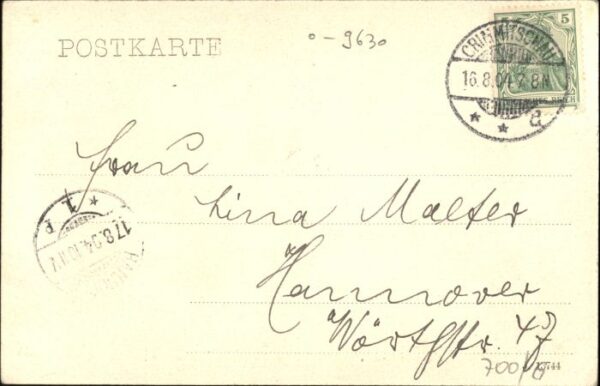 o-9630
5
POSTKARTE
CRIMMITSCHAU
16.8.04. 7-8N.
* * d
Frau
Lina Malter
Hannover
Wörthstr. 47
17.8.04.
* 1 P
700